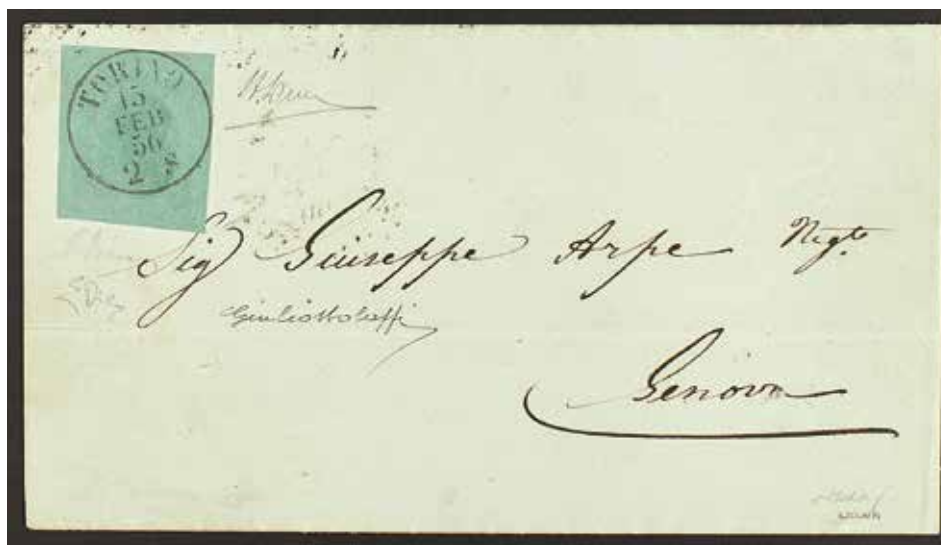 TORINO
15
FEB
56
2 S
Sig Giuseppe Arpe Negte
Giulio Bolaffi
Genova